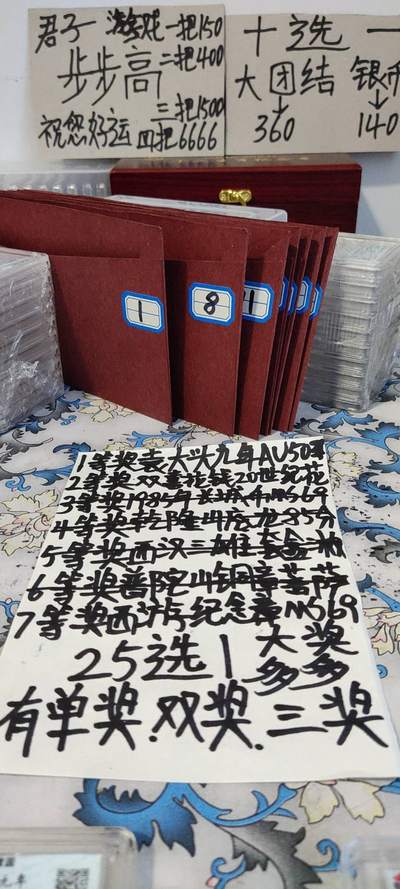 君子 游戏 一把150
步步高 二把400
三把1500
祝您好运 四把6666
十选一
大团结 银币
360 140
1
8
1
1等奖袁大头九年AU50
2等奖双
3等奖1985年长城币MS69
4等奖乾隆 85分
5等奖西汉三
6等奖普陀山铜章菩萨
7等奖西游纪念章MS69
25选1 大奖多多
有单奖.双奖.三奖